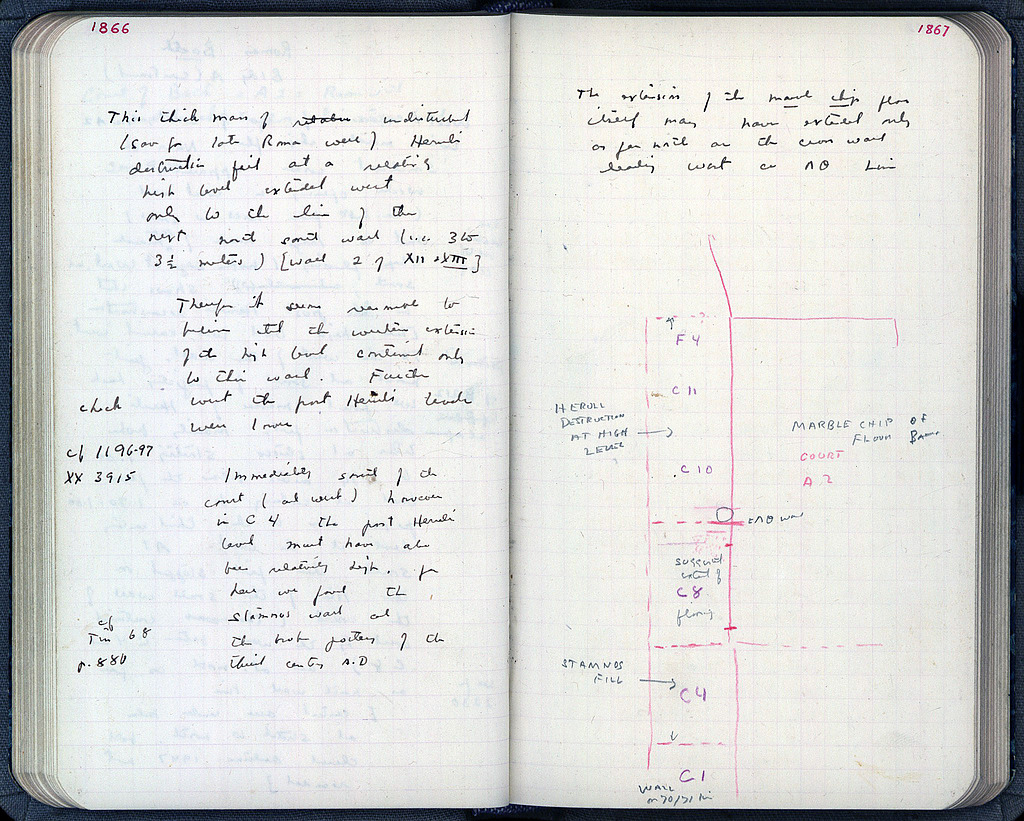 1866
This thick mass of undisturbed
(save for late Roman wells) Heruli
destruction fill at a relatively
high level extended west
only to the line of the
next north south wall (i.e. 3 to
3½ meters) [wall 2 of XII & XIII]
Therefore it seems reasonable to
believe that the western extension
of the high level continued only
to this wall. Further
check west the post Heruli levels
were lower
cf 1196-97
XX 3915 Immediately south of the
court (and west) however
in C 4 the post Heruli
level must have also
been relatively high, for
here we found the
stamnos wall and
cf
Tin 68 the broken pottery of the
p. 880 third century A.D
1867
The extension of the marble chip floor
itself may have extended only
as far north as the cross wall
leading west on ΛΘ line
F 4
C 11
HERULI
DESTRUCTION
AT HIGH
LEVEL
MARBLE CHIP OF
FLOOR
COURT
A 2
C 10
ΛΘ wall
suggested
extent of
C 8
flooring
STAMNOS
FILL
C 4
C 1
WALL
on 70/71 line